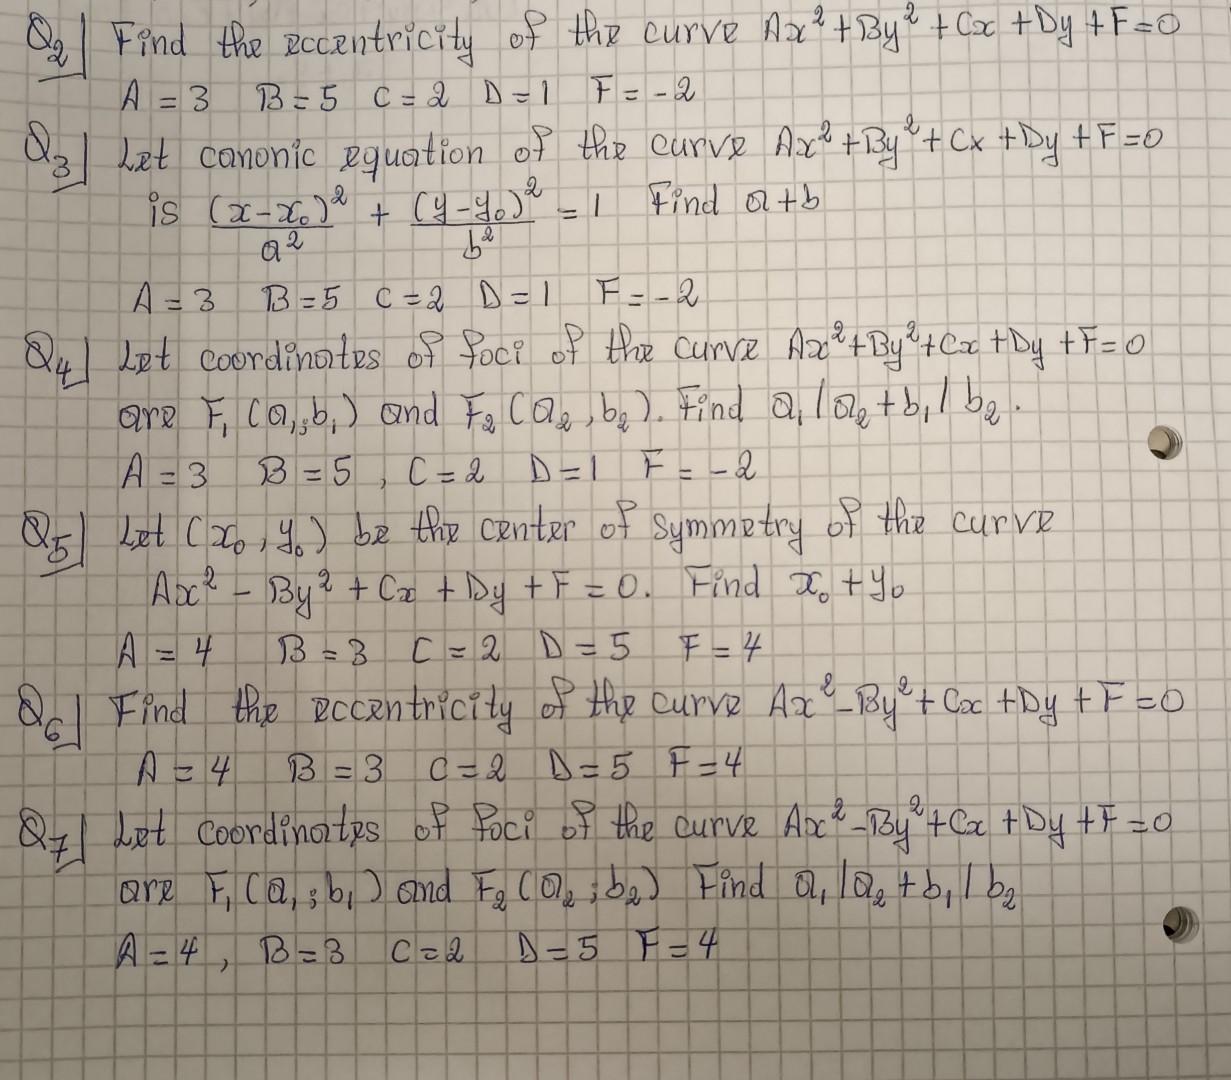 Q₂| Find the eccentricity of the curve Ax² + By² + Cx + Dy + F = 0
A = 3 B = 5 C = 2 D = 1 F = -2
Q₃| Let canonic equation of the curve Ax² + By² + Cx + Dy + F = 0
is (x - x₀)²/a² + (y - y₀)²/b² = 1 Find a + b
A = 3 B = 5 C = 2 D = 1 F = -2
Q₄| Let coordinates of foci of the curve Ax² + By² + Cx + Dy + F = 0
are F₁ (a₁; b₁) and F₂ (a₂, b₂). Find a₁/a₂ + b₁/b₂.
A = 3 B = 5, C = 2 D = 1 F = -2
Q₅| Let (x₀, y₀) be the center of symmetry of the curve
Ax² - By² + Cx + Dy + F = 0. Find x₀ + y₀
A = 4 B = 3 C = 2 D = 5 F = 4
Q₆| Find the eccentricity of the curve Ax² - By² + Cx + Dy + F = 0
A = 4 B = 3 C = 2 D = 5 F = 4
Q₇| Let coordinates of foci of the curve Ax² - By² + Cx + Dy + F = 0
are F₁ (a₁; b₁) and F₂ (a₂; b₂) Find a₁/a₂ + b₁/b₂
A = 4, B = 3 C = 2 D = 5 F = 4